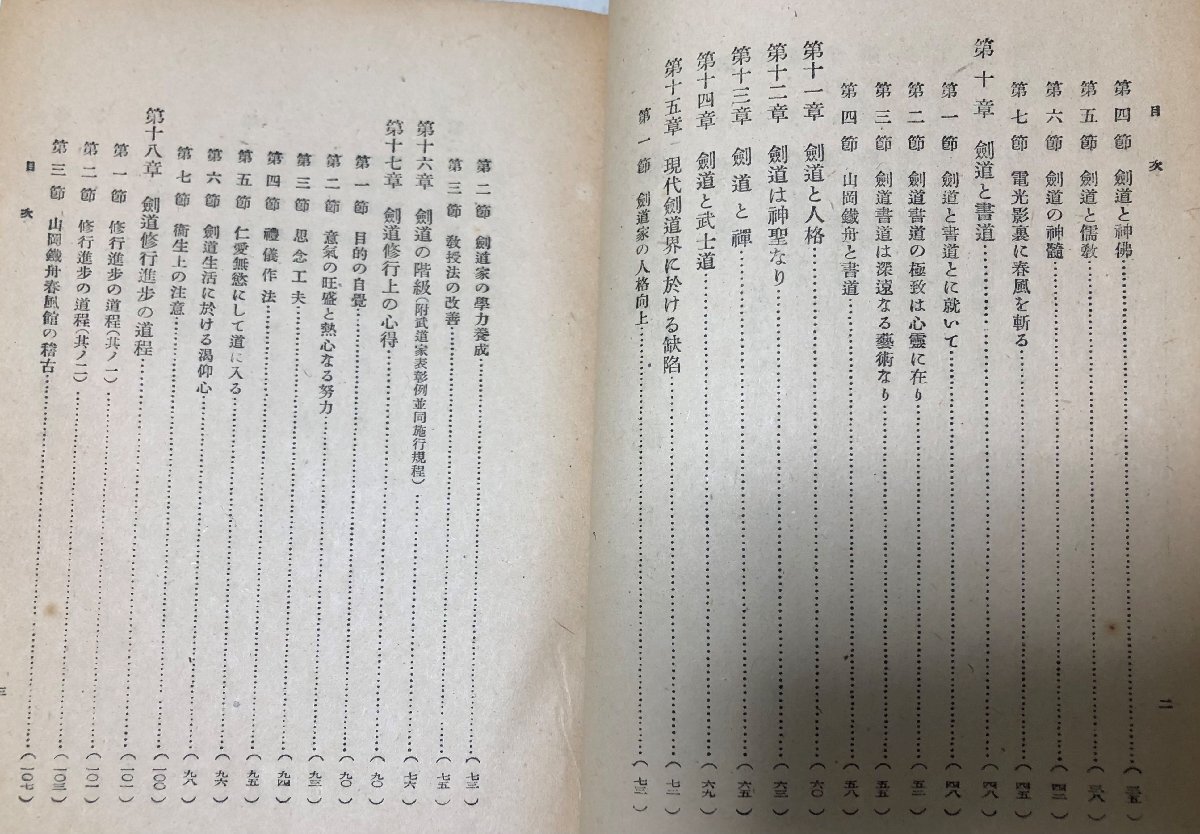 目次
第四節 劍道と神佛……(三五)
第五節 劍道と儒教……(三八)
第六節 劍道の神髓……(四二)
第七節 電光影裏に春風を斬る……(四五)
第十章 劍道と書道……(四八)
第一節 劍道と書道とに就いて……(四八)
第二節 劍道書道の極致は心靈に在り……(五二)
第三節 劍道書道は深遠なる藝術なり……(五五)
第四節 山岡鐵舟と書道……(五八)
第十一章 劍道と人格……(六〇)
第十二章 劍道は神聖なり……(六三)
第十三章 劍道と禪……(六五)
第十四章 劍道と武士道……(六九)
第十五章 現代劍道界に於ける缺陷……(七二)
第一節 劍道家の人格向上……(七三)
二
第二節 劍道家の學力養成……(七三)
第三節 敎授法の改善……(七五)
第十六章 劍道の階級(附武道家表彰例並同施行規程)……(七六)
第十七章 劍道修行上の心得……(九〇)
第一節 目的の自覺……(九〇)
第二節 意氣の旺盛と熱心なる努力……(九三)
第三節 思念工夫……(九四)
第四節 禮儀作法……(九五)
第五節 仁愛無慾にして道に入る……(九六)
第六節 劍道生活に於ける渴仰心……(九八)
第七節 衞生上の注意……(一〇〇)
第十八章 劍道修行進步の道程……(一〇一)
第一節 修行進步の道程(其ノ一)……(一〇一)
第二節 修行進步の道程(其ノ二)……(一〇三)
第三節 山岡鐵舟春風館の稽古……(一〇七)
目次
三